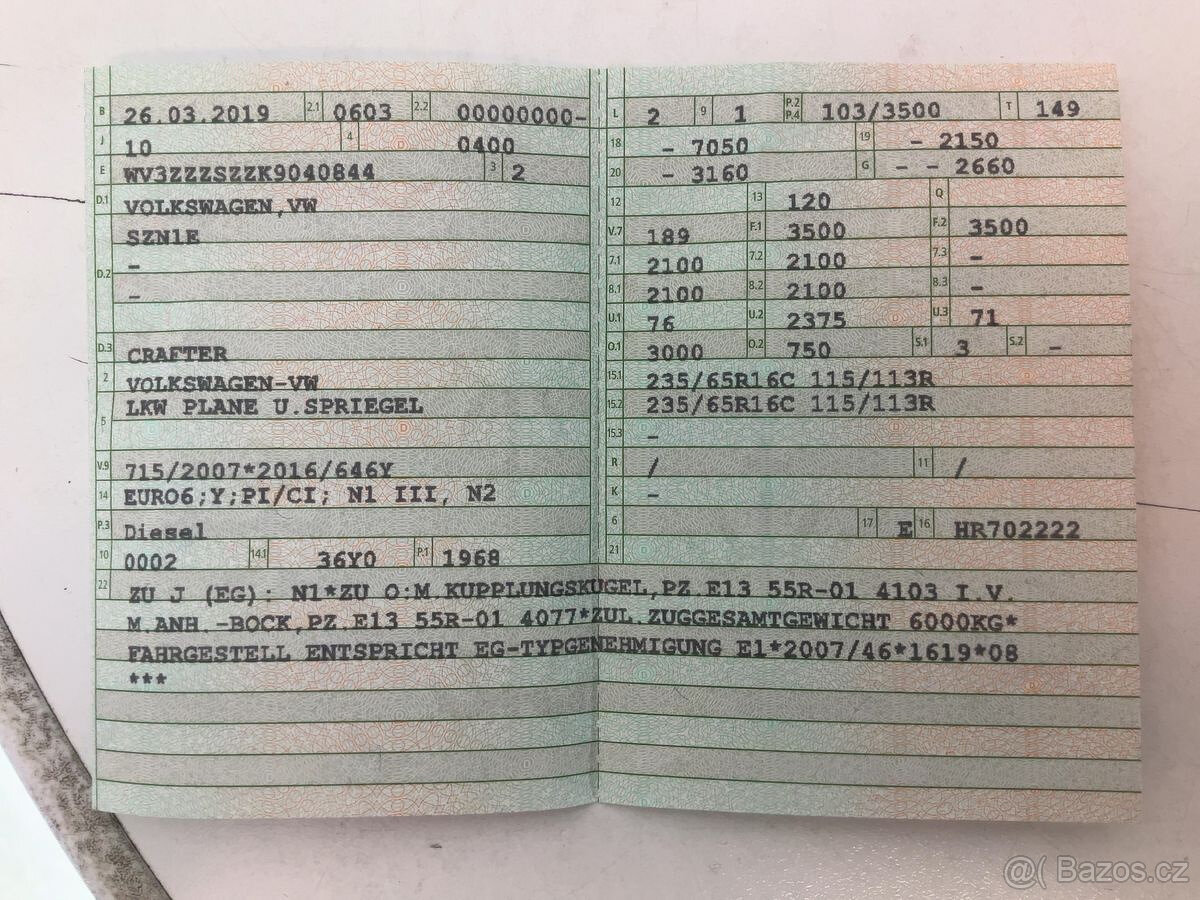 B 26.03.2019 2.1 0603 2.2 00000000-
J 10 4 0400
E WV3ZZZSZZK9040844 3 2
D.1 VOLKSWAGEN,VW
SZN1E
D.2 -
-
D.3 CRAFTER
2 VOLKSWAGEN-VW
5 LKW PLANE U.SPRIEGEL
V.9 715/2007*2016/646Y
14 EURO6;Y;PI/CI; N1 III, N2
P.3 Diesel
10 0002 14.1 36Y0 P.1 1968
L 2 9 1 P.2 P.4 103/3500 T 149
18 - 7050 19 - 2150
20 - 3160 G - - 2660
12 13 120 Q
V.7 189 F.1 3500 F.2 3500
7.1 2100 7.2 2100 7.3 -
8.1 2100 8.2 2100 8.3 -
U.1 76 U.2 2375 U.3 71
O.1 3000 O.2 750 S.1 3 S.2 -
15.1 235/65R16C 115/113R
15.2 235/65R16C 115/113R
15.3 -
R / 11 /
K -
6 17 E 16 HR702222
21
22 ZU J (EG): N1*ZU O:M.KUPPLUNGSKUGEL,PZ.E13 55R-01 4103 I.V.
M.ANH.-BOCK,PZ.E13 55R-01 4077*ZUL.ZUGGESAMTGEWICHT 6000KG*
FAHRGESTELL ENTSPRICHT EG-TYPGENEHMIGUNG E1*2007/46*1619*08
***
@( Bazos.cz